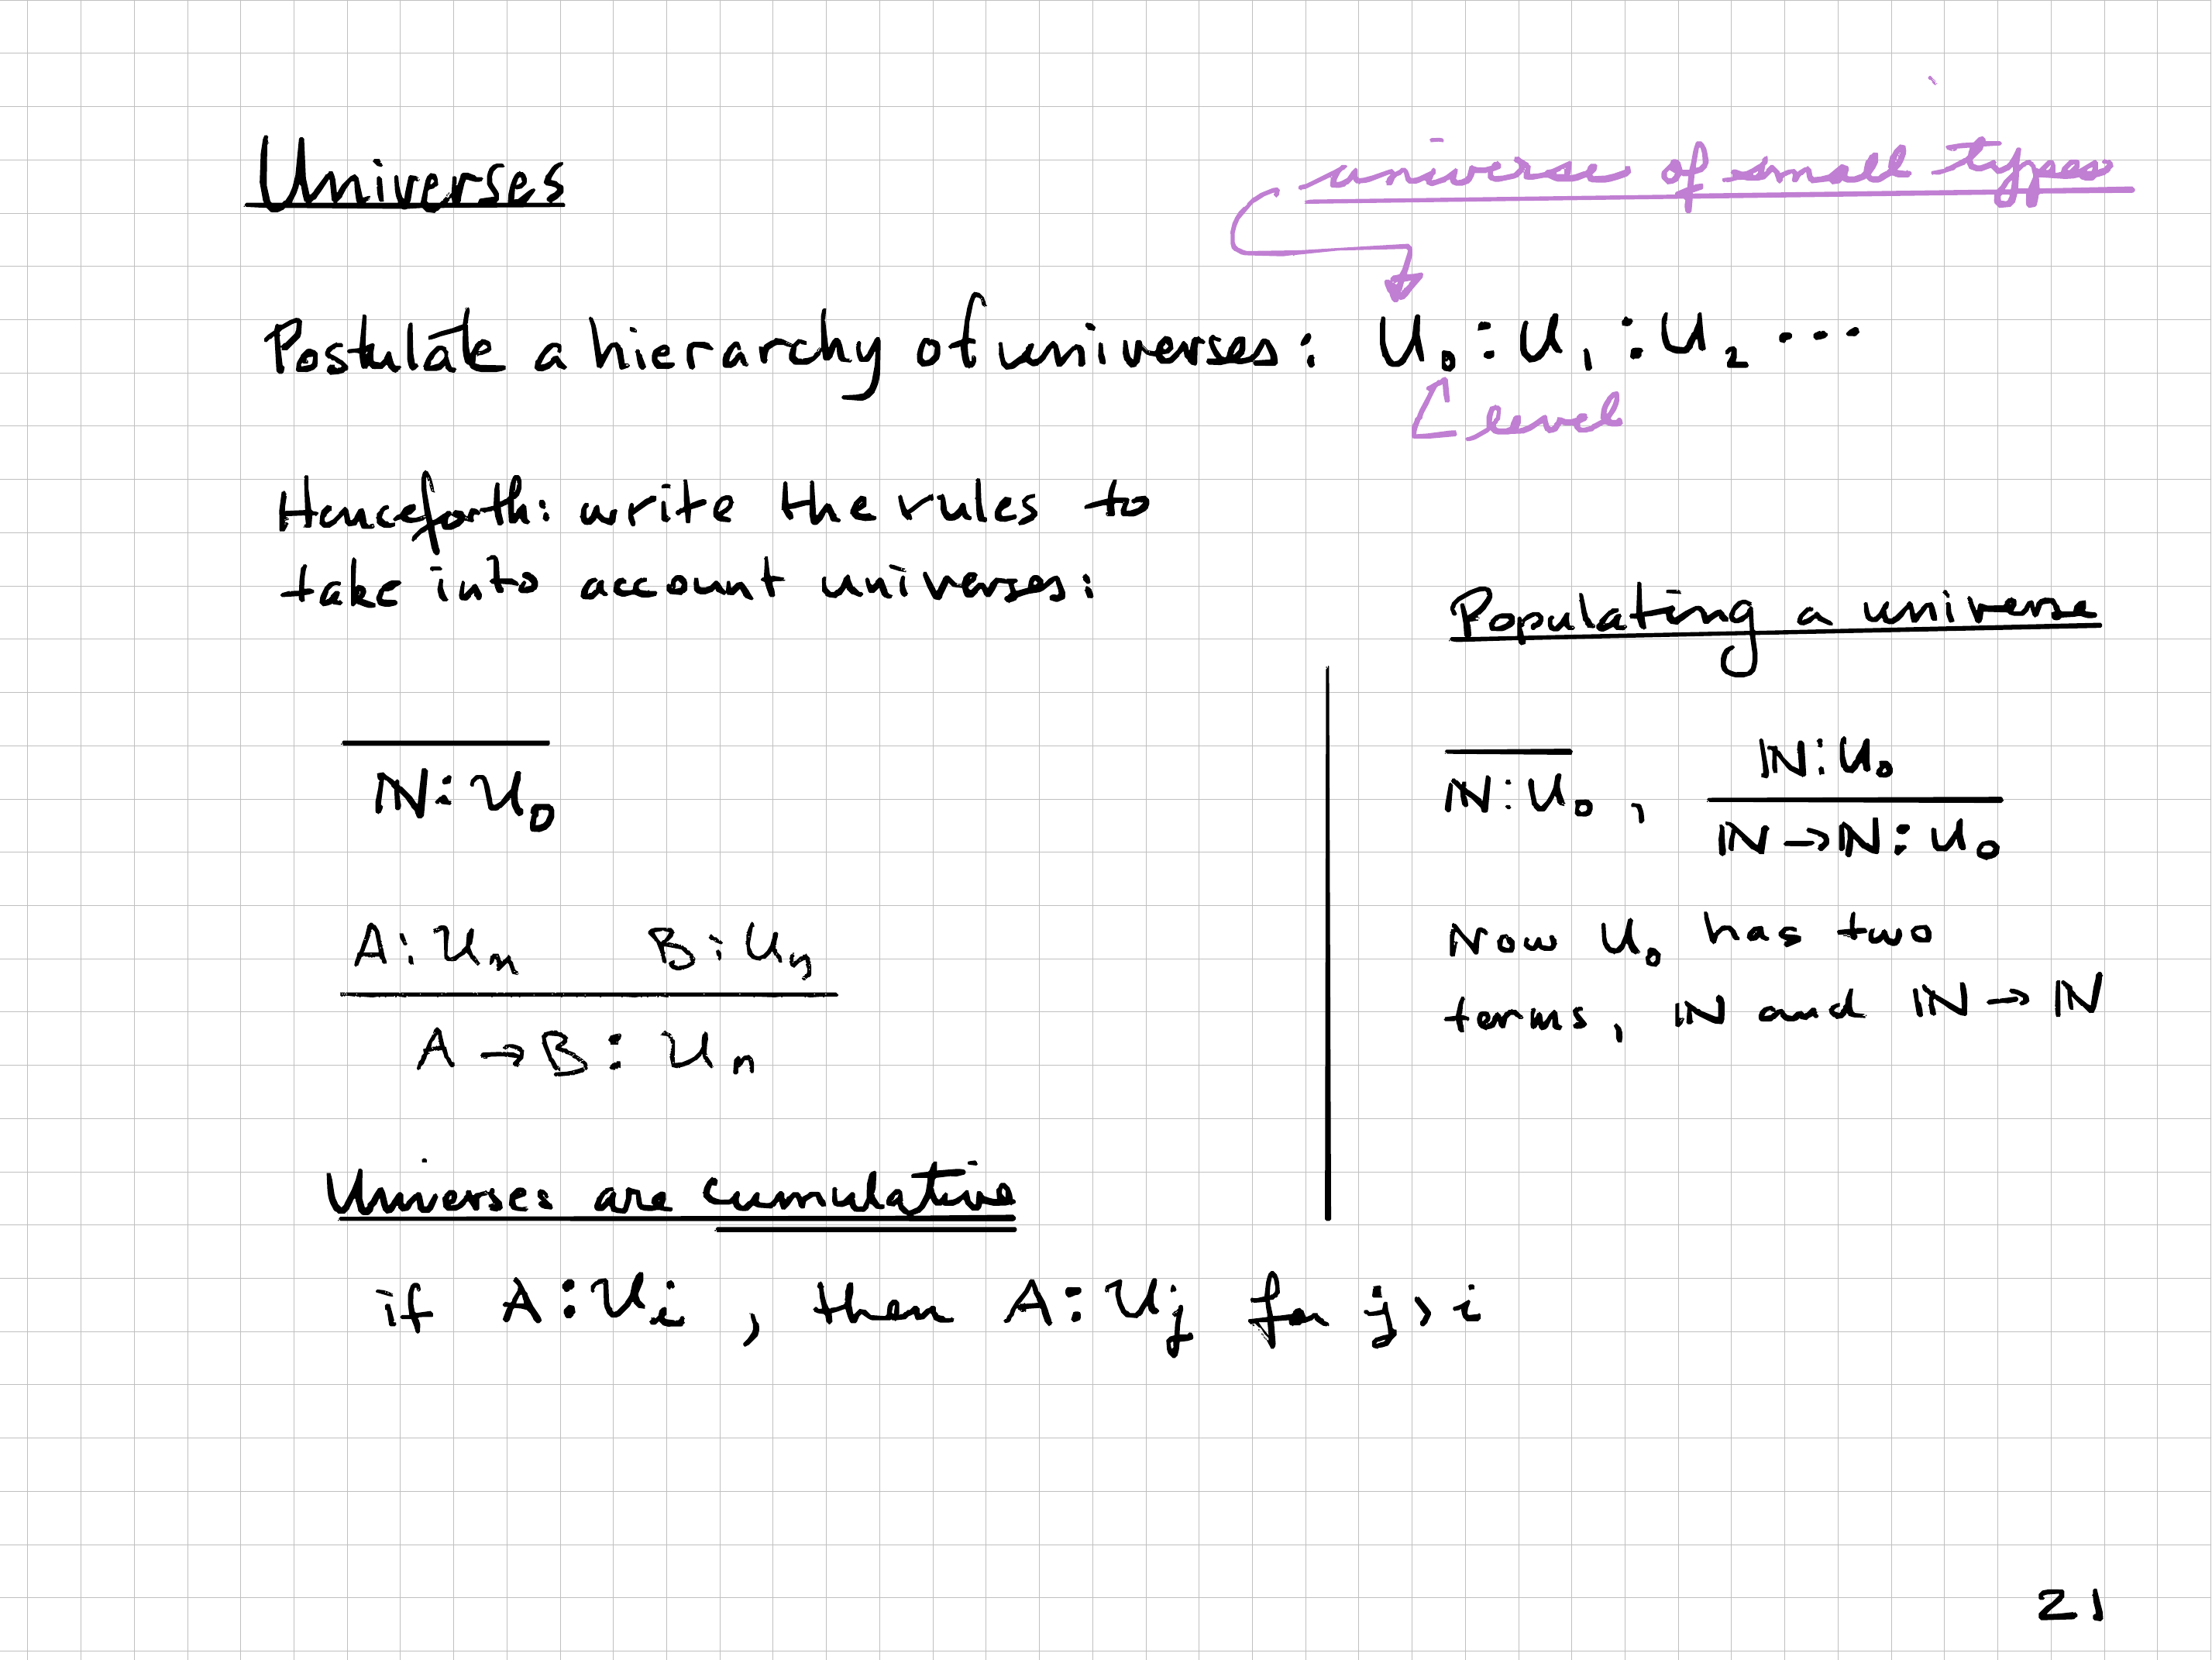 Universes
universe of small types
Postulate a hierarchy of universes: U₀ : U₁ : U₂ ···
level
Henceforth: write the rules to
take into account universes:
ℕ : U₀
A : Uₙ B : Uₙ
A → B : Uₙ
Universes are cumulative
if A : Uᵢ , then A : Uⱼ for j > i
Populating a universe
ℕ : U₀ , ℕ : U₀
ℕ → ℕ : U₀
Now U₀ has two
terms, ℕ and ℕ → ℕ
21